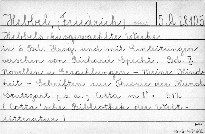 Hebbel, (Friedrich)
Hebbels ausgewählte Werke
in 6 Bde. Hrsg. und mit Einleitungen
versehen von Richard Specht. Bd. 
Novellen u. Erzählungen - Meine Kind-
heit - Schriften zur Theorie der Kunst
Stuttgart, s. a., Cotta
(Cotta'sche Bibliothek der Welt-
litteratur)